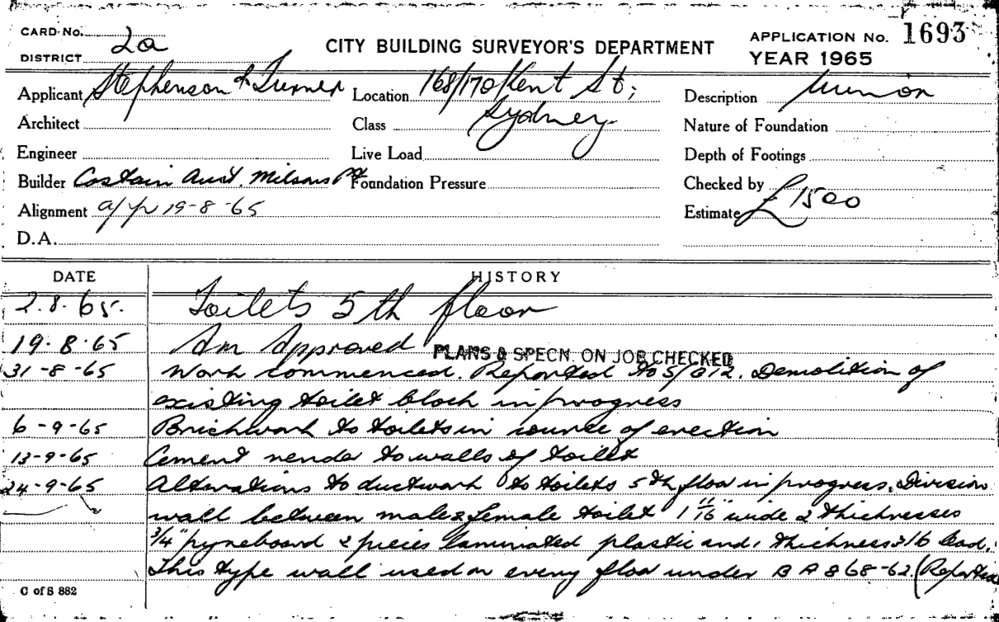 CARD No. 2a
DISTRICT
CITY BUILDING SURVEYOR'S DEPARTMENT
APPLICATION No. 1693
YEAR 1965
Applicant Stephenson & Turner
Location 168/170 Kent St;
Sydney.
Description Minor
Architect
Class
Nature of Foundation
Engineer
Live Load
Depth of Footings
Builder Costain Aust. Milsons Pt
Foundation Pressure
Checked by
Alignment a/p 19-8-65
Estimate £1500
D.A.
DATE HISTORY
2.8.65. Toilets 5th floor
19.8.65 Am Approved
PLANS & SPECN. ON JOB CHECKED
31-8-65 Work commenced. Reported to S/012. Demolition of
existing toilet block in progress
6-9-65 Brickwork to toilets in course of erection
13-9-65 Cement render to walls of toilet
24-9-65 Alterations to ductwork to toilets 5th floor in progress. Division
wall between male & female toilet 1 11/16" wide 2 thicknesses
3/4" pyneboard 2 pieces laminated plastic and 1 thickness 3/16 lead.
This type wall used on every floor under BA 868-62. (Reported
C of S 882